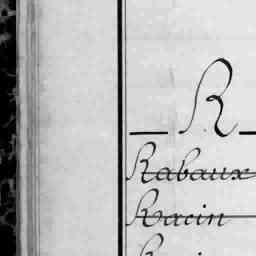 R
Rabaux
Racin